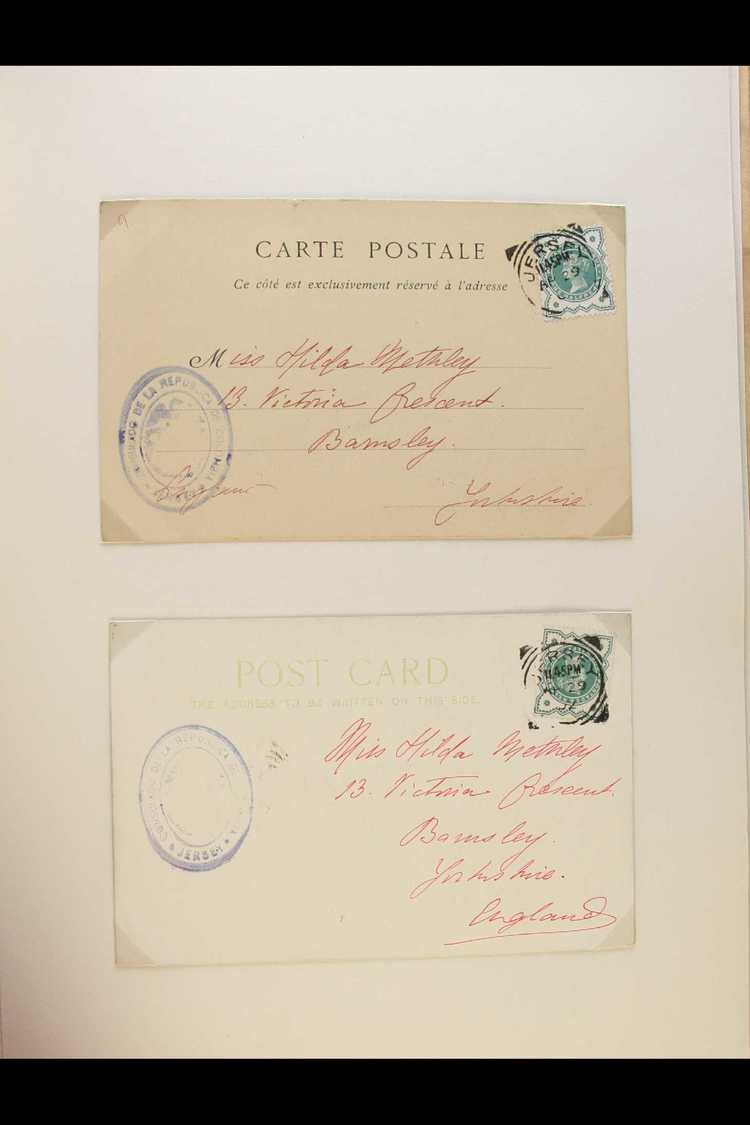 CARTE POSTALE
Ce côté est exclusivement réservé à l'adresse
JERSEY
11.45PM
29
Miss Hilda Methley
13. Victoria Crescent.
Barnsley.
Yorkshire.
DE LA REPUBLICA DE
POST CARD
THE ADDRESS TO BE WRITTEN ON THIS SIDE.
JERSEY
11.45PM
29
02
Miss Hilda Methley
13. Victoria Crescent.
Barnsley.
Yorkshire.
England
CONSULADO DE LA REPUBLICA DE
JERSEY